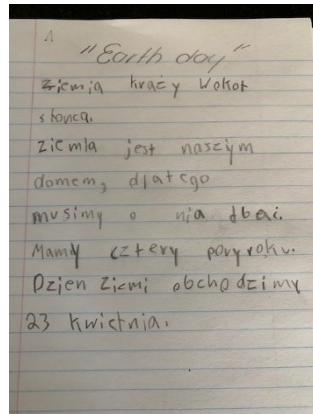 "Earth day"
ziemia kraży wokoł
słońca.
ziemia jest naszym
domem, dlatego
musimy o nia dbać.
Mamy cztery pory roku.
Dzien Ziemi obchodzimy
23 kwietnia.